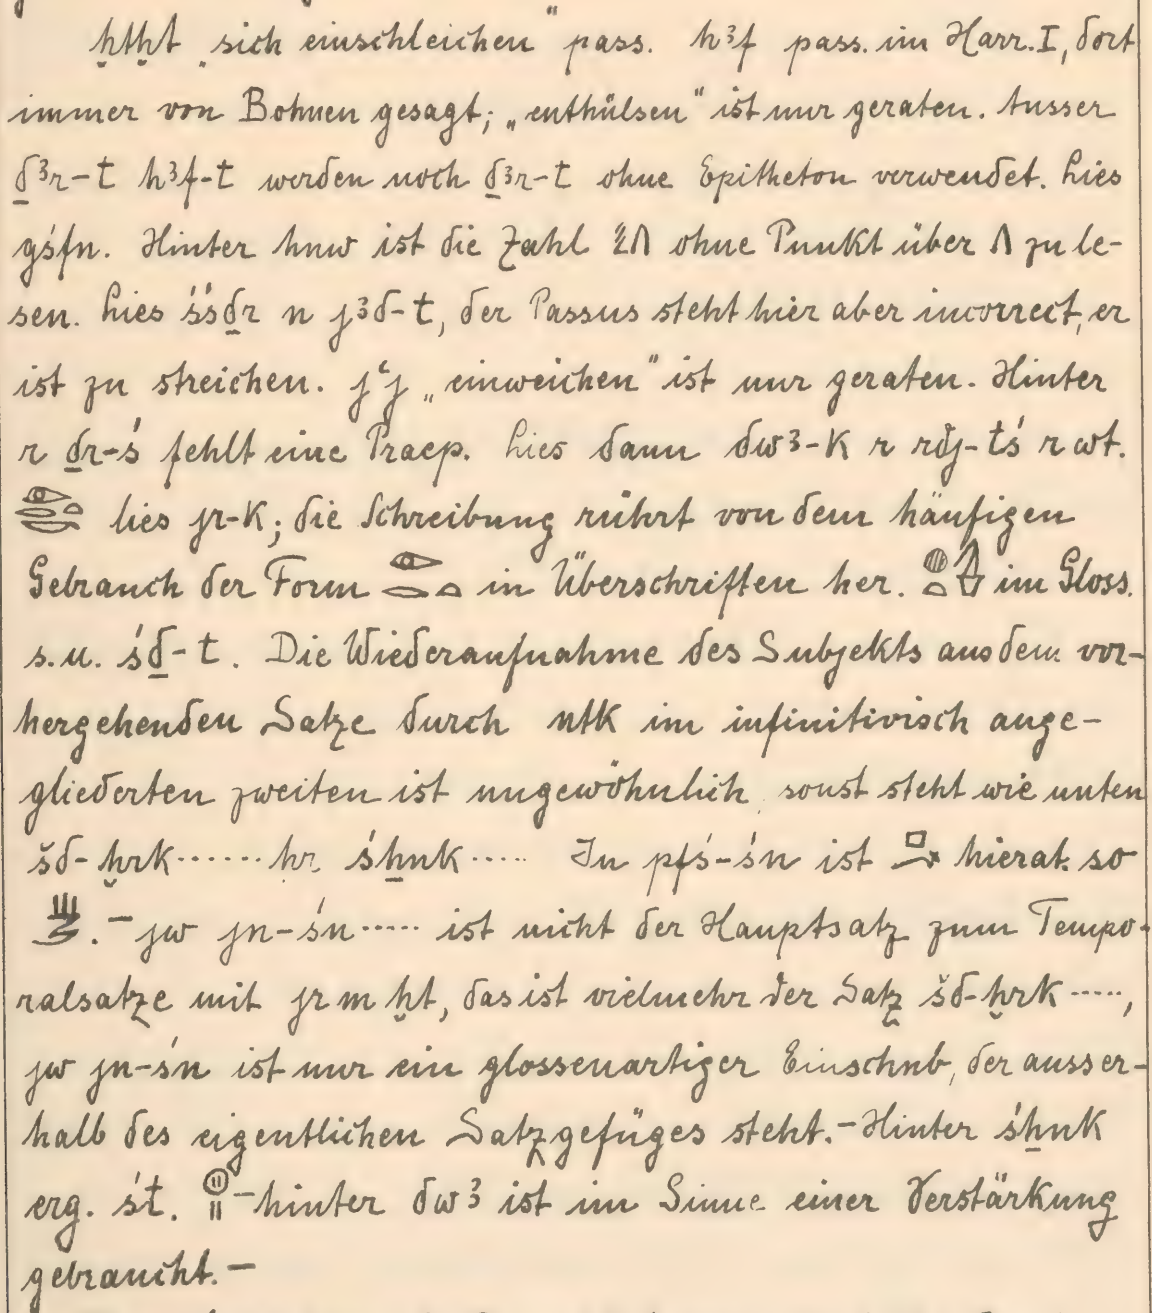 ḫtḫt „sich einschleichen“ pass. h³f pass. im Harr. I, dort
immer von Bohnen gesagt; „enthülsen“ ist nur geraten. Ausser
ḏ³r-t h³f-t werden noch ḏ³r-t ohne Epitheton verwendet. Lies
gśfn. Hinter hnw ist die Zahl ohne Punkt über zu le-
sen. Lies śśḏr n j³d-t, der Passus steht hier aber incorrect, er
ist zu streichen. jʿj „einweichen“ ist nur geraten. Hinter
r ḏr-ś fehlt eine Praep. Lies dann dw³-k r rdj-tś r wt.
lies jr-k; die Schreibung rührt von dem häufigen
Gebrauch der Form in Überschriften her. im Gloss.
s. u. śḏ-t. Die Wiederaufnahme des Subjekts aus dem vor-
hergehenden Satze durch ntk im infinitivisch ange-
gliederten zweiten ist ungewöhnlich, sonst steht wie unten
šd-ḫrk ...... hr śẖnk ..... In pfś-śn ist hierat. so
. – jw jn-śn ..... ist nicht der Hauptsatz zum Tempo-
ralsatze mit jr m ḫt, das ist vielmehr der Satz šd-ḫrk .....,
jw jn-śn ist nur ein glossenartiger Einschub, der ausser-
halb des eigentlichen Satzgefüges steht. – Hinter śẖnk
erg. śt. – hinter dw³ ist im Sinne einer Verstärkung
gebraucht. –